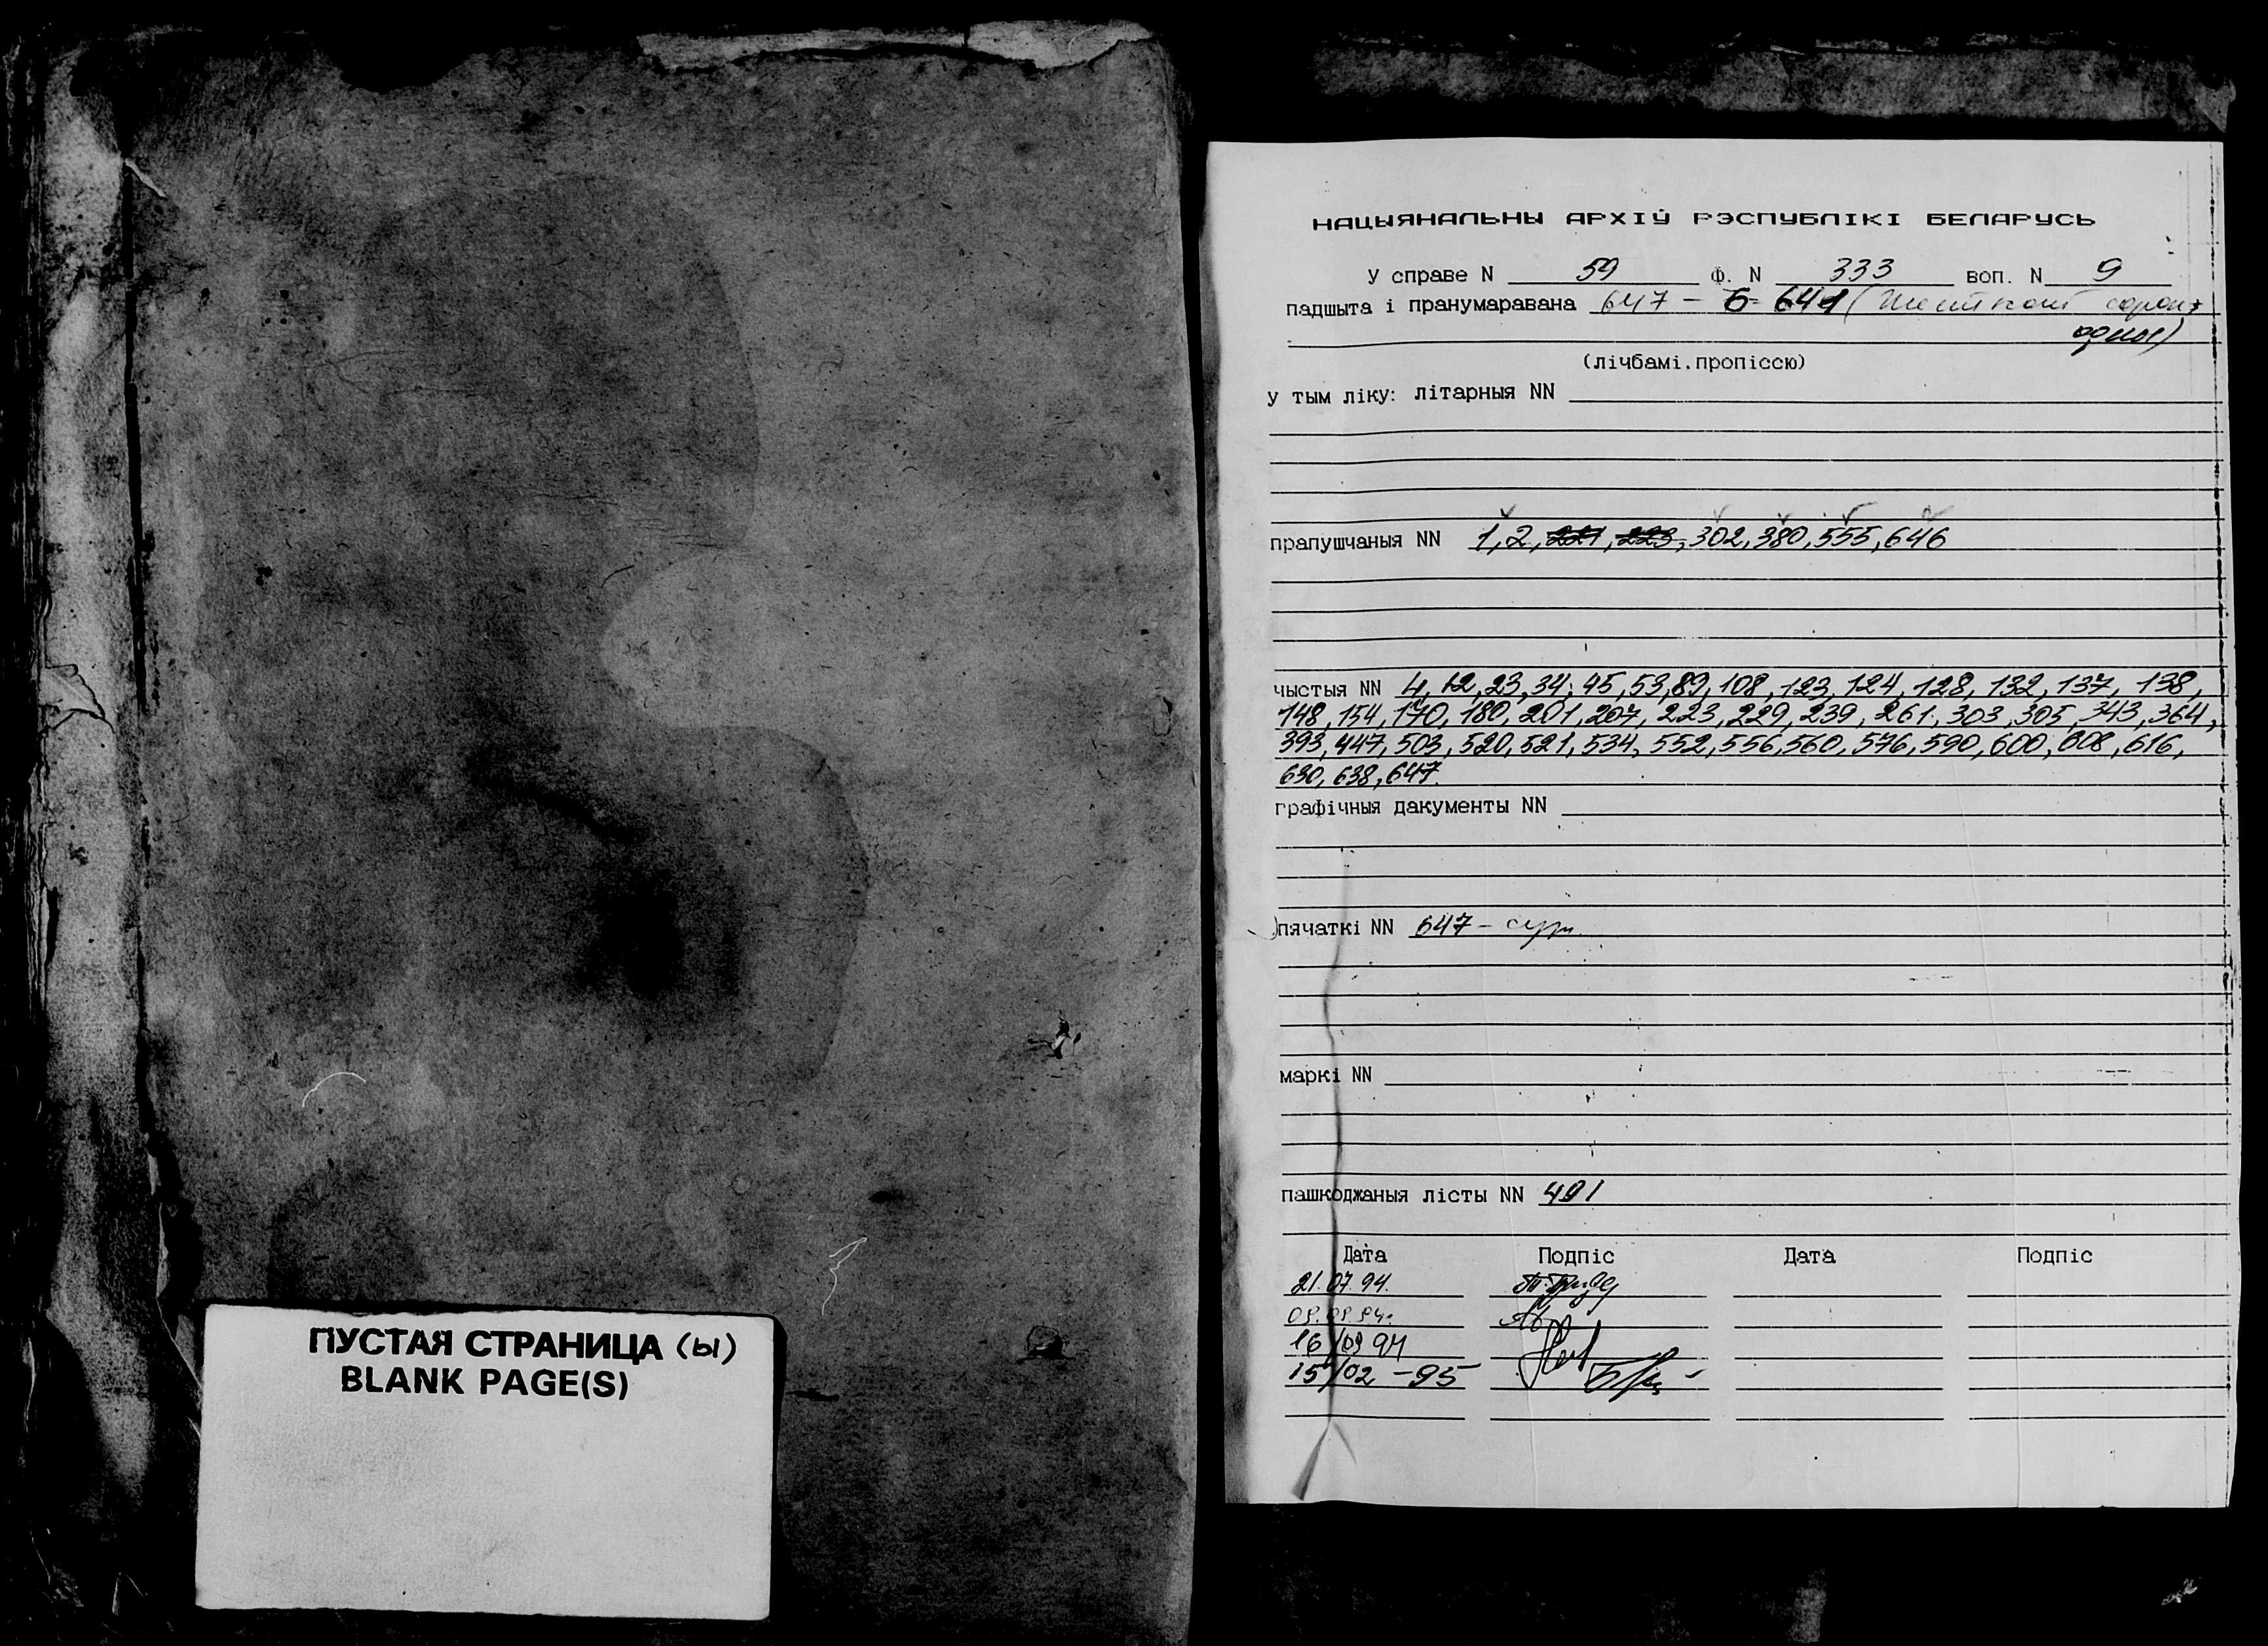 ПУСТАЯ СТРАНИЦА (ы)
BLANK PAGE(S)
НАЦЫЯНАЛЬНЫ АРХІЎ РЭСПУБЛІКІ БЕЛАРУСЬ
У справе N 59 Ф. N 333 воп. N 9
падшыта і пранумаравана 647 - 6 = 641 (
(лічбамі.пропіссю)
у тым ліку: літарныя NN
прапушчаныя NN 1, 2, 221, 223, 302, 380, 555, 646
чыстыя NN 4, 12, 23, 34, 45, 53, 89, 108, 123, 124, 128, 132, 137, 138,
148, 154, 170, 180, 201, 207, 223, 229, 239, 261, 303, 305, 343, 364,
393, 447, 503, 520, 521, 534, 552, 556, 560, 576, 590, 600, 608, 616,
630, 638, 647.
графічныя дакументы NN
пячаткі NN 647 -
маркі NN
пашкоджаныя лісты NN 491
Дата Подпіс Дата Подпіс
21.07.94.
16/09 94
15/02 - 95